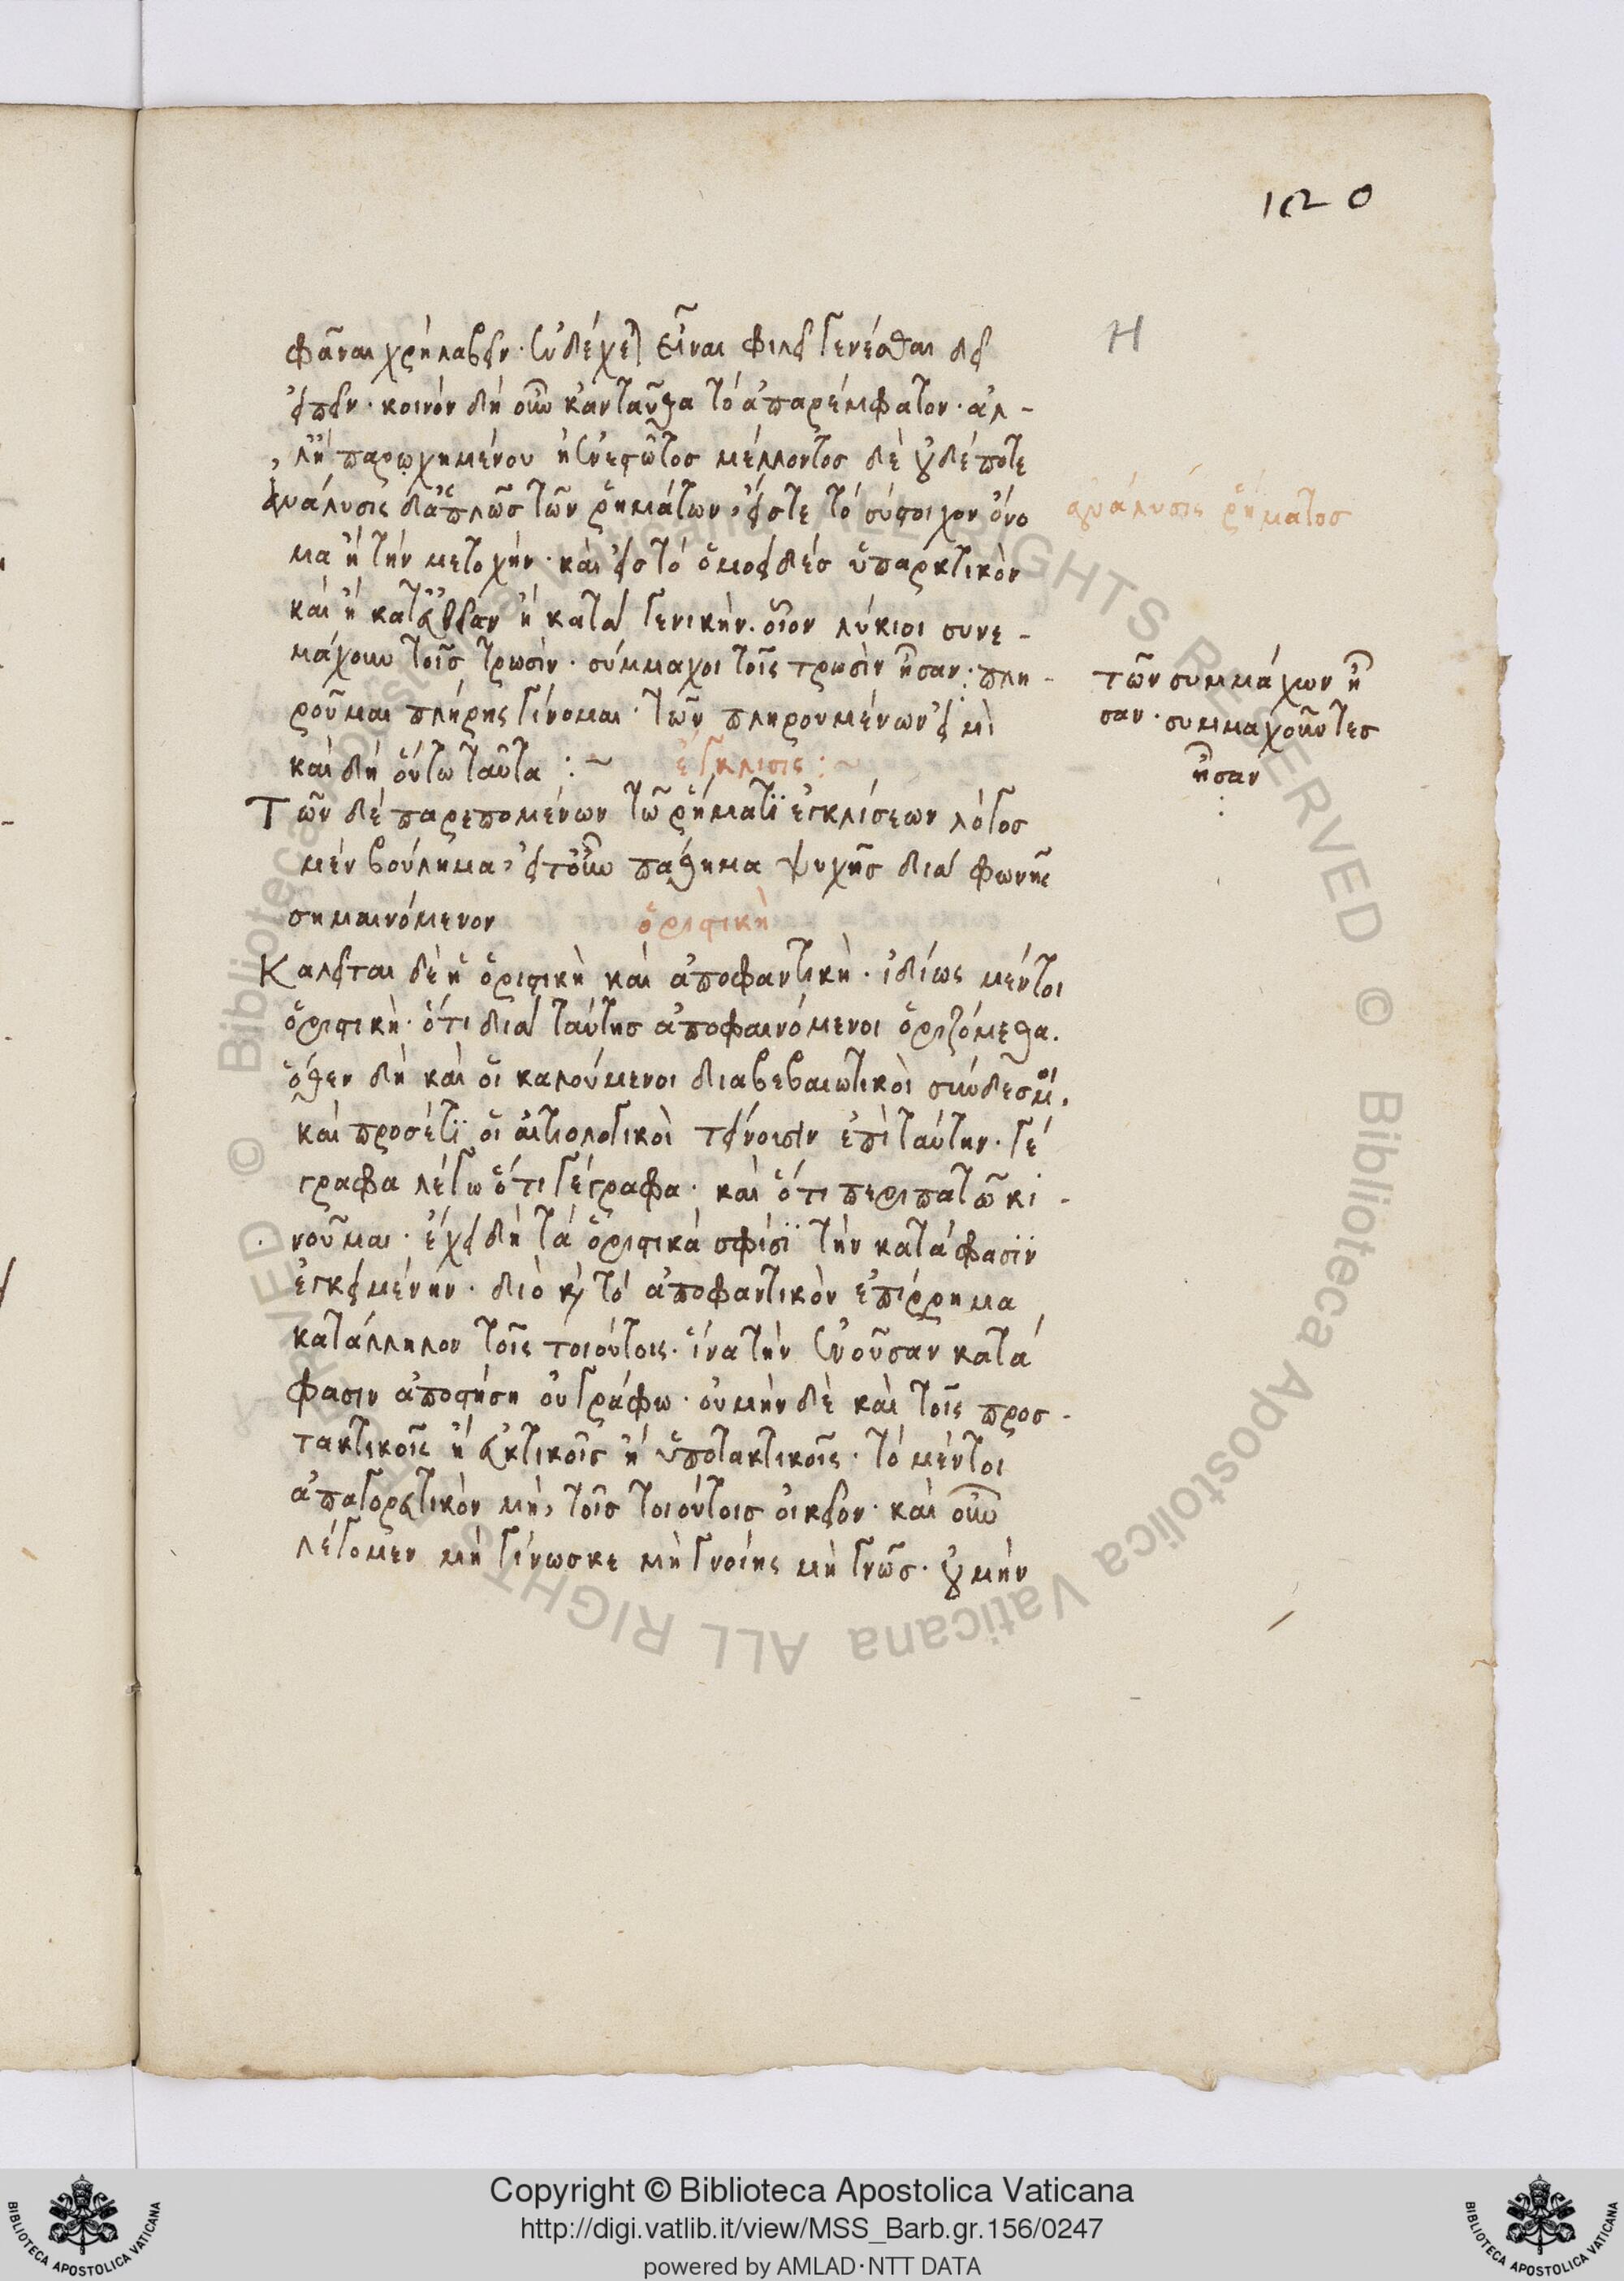 120
Η
φᾶναι χρὴ λαβεῖν· ἐνδέχεται εἶναι φιλεῖ γενέσθαι δεῖ
εἰπεῖν· κοινὸν δὴ οὖν κἀνταῦθα τὸ ἀπαρέμφατον· ἀλ-
λ' ἢ παρῳχημένου ἢ ἐνεστῶτος μέλλοντος δὲ οὐδέποτε
ἀνάλυσις δὲ ἁπλῶς τῶν ῥημάτων, εἴς τε τὸ σύστοιχον ὄνο
μα ἢ τὴν μετοχήν· καὶ εἰς τὸ ὁμοειδὲς ὑπαρκτικὸν
καὶ ἢ κατ' εὐθεῖαν ἢ κατὰ γενικήν. οἷον λύκιοι συνε-
μάχουν τοῖς τρωσὶν· σύμμαχοι τοῖς τρωσὶν ἦσαν· πλη-
ροῦμαι πλήρης γίνομαι· τῶν πληρουμένων εἰμὶ
καὶ δὴ οὕτω ταῦτα :~ ἔγκλισις :~
Τῶν δὲ παρεπομένων τῶ ῥήματϊ ἐγκλίσεων λόγος
μὲν βούλημα, εἴτουν πάθημα ψυχῆς διὰ φωνῆς
σημαινόμενον ὁριστικὴ
Καλεῖται δὲ ἡ ὁριστικὴ καὶ ἀποφαντικὴ· ἰδίως μέντοι
ὁριστικὴ· ὅτι διὰ ταύτης ἀποφαινόμενοι ὁριζόμεθα.
ὅθεν δὴ καὶ οἱ καλούμενοι διαβεβαιωτικοὶ σύνδεσμοι,
καὶ προσέτϊ οἱ αἰτιολογικοὶ τείνουσιν ἐπὶ ταύτην· γέ
γραφα λέγω ὅτι γέγραφα· καὶ ὅτι περιπατῶ κι-
νοῦμαι· ἔχει δὴ τὰ ὁριστικὰ σφίσϊ τὴν κατάφασϊν
ἐγκειμένην· διὸ καὶ τὸ ἀποφαντικὸν ἐπίρρημα
κατάλληλον τοῖς τοιούτοις· ἵνα τὴν ἐνοῦσαν κατά
φασιν ἀποστήση οὐ γράφω· οὐ μὴν δὲ καὶ τοῖς προσ-
τακτικοῖς ἢ εὐκτικοῖς ἢ ὑποτακτικοῖς· τὸ μέντοι
ἀπαγορευτικὸν μὴ, τοῖς τοιούτοις οἰκεῖον· καὶ οὖν
λέγομεν μὴ γίνωσκε μὴ γνοίης μὴ γνῶς· οὐ μὴν
ἀνάλυσις ῥήματος
τῶν συμμάχων ἦ
σαν· συμμαχοῦντες
ἦσαν
:
Copyright © Biblioteca Apostolica Vaticana
http://digi.vatlib.it/view/MSS_Barb.gr.156/0247
powered by AMLAD·NTT DATA
BIBLIOTECA APOSTOLICA VATICANA
BIBLIOTECA APOSTOLICA VATICANA
© Biblioteca Apostolica Vaticana ALL RIGHTS RESERVED © Biblioteca Apostolica Vaticana ALL RIGHTS RESERVED